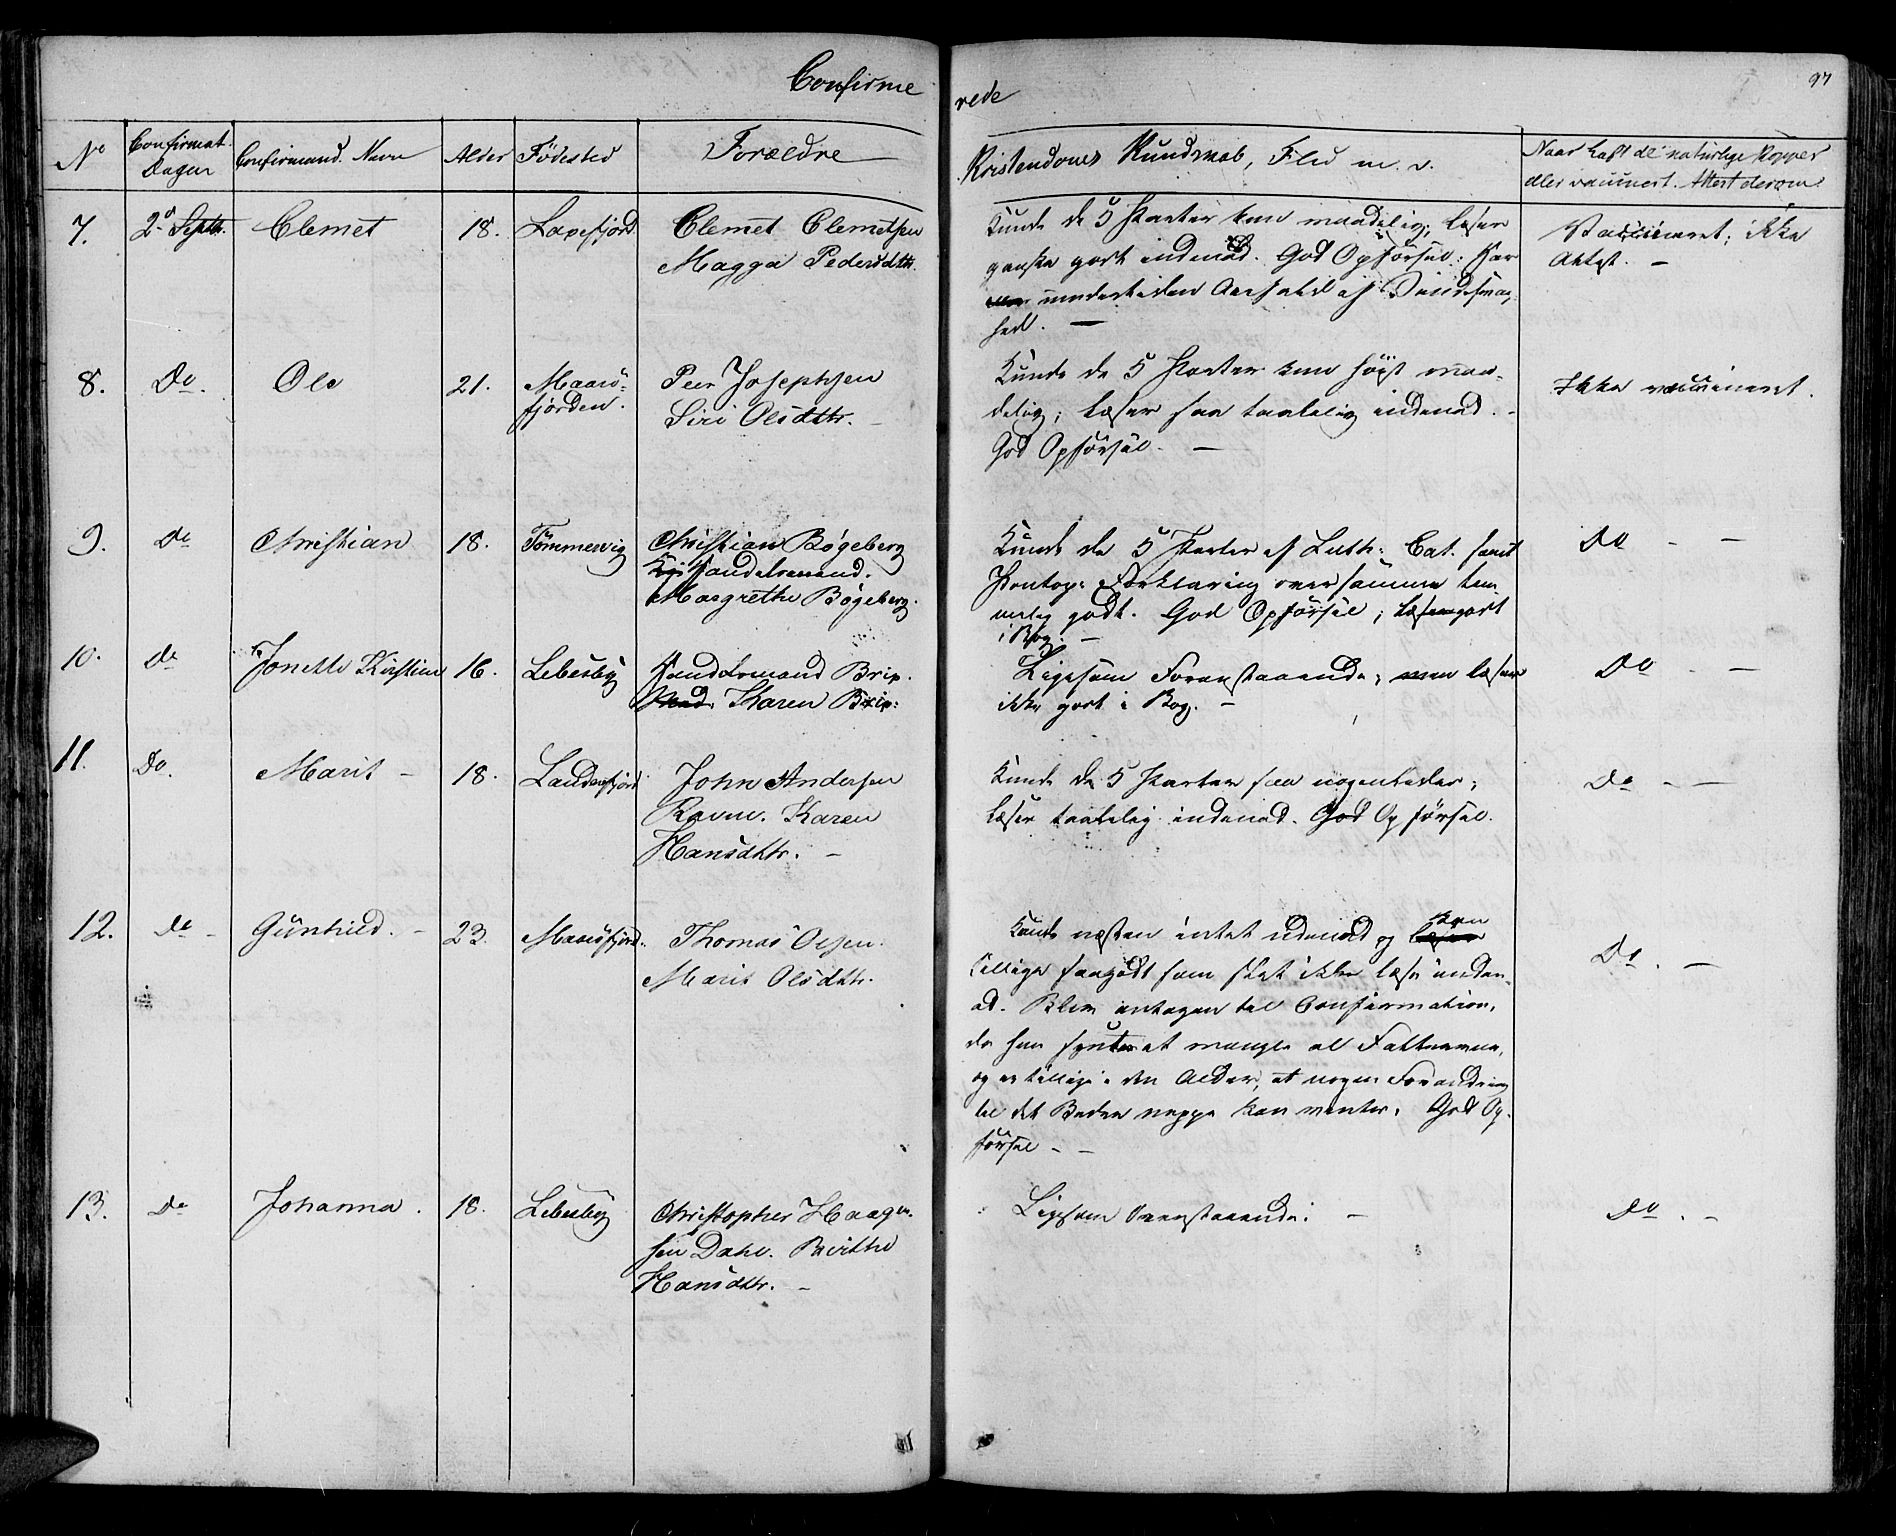 Confirme
rede
97
No
Confirmat. Dagen
Confirmand. Navn
Alder
Fødested
Forældre
Kristendoms Kundskab, Flid m. v.
Naar haft de naturlige Kopper
eller vaccineret. Attest derom
7. 2d Septbr. Clemet 18. Laxefjord Clemet Clemetsen
Magga Pedersdtr.
Kunde de 5 Parter kun maadelig; læser
ganske godt indenad. God Opførsel; har
undertiden Anfald af Sindssvag-
hed. —
Vaccineret; ikke
Attest. —
8. Do. Ole 21. Maars-
fjorden.
Peer Josephsen
Siri Olsdtr. —
Kunde de 5 Parter kun høist maa-
delig; læser saa taalelig indenad. -
God Opførsel. —
Ikke vaccineret.
9. Do Christian 18. Tømmervig Christian Bøgeberg
Handelsmand.
Margrethe Bøgeberg.
Kunde de 5 Parter af Luth: Cat. samt
Pontop: Forklaring over samme tem-
melig godt. God Opførsel; læser godt
i Bog. —
Do - —
10. Do Jonette Kirstine 16. Lebesby Handelsmand Brix.
Mad. Karen Brix:
Ligesom Foranstaaende; men læser
ikke godt i Bog. —
Do - —
11. Do. Marit - 18. Landersfjord John Andersen
Ravn. Karen
Hansdtr. —
Kunde de 5 Parter saa nogenledes;
læser taalelig indenad. God Opførsel.
Do - —
12. Do - Gunhild. - 23. Maarsfjord. Thomas Olsen.
Marit Olsdtr.
Kunde næsten intet udenad og læser kan
tillige saagodt som slet ikke læse inden-
ad. Blev antagen til Confirmation,
da hun syntes at mangle al Fatteevne,
og er tillige i den Alder, at nogen Forandring
til det Bedre neppe kan ventes. God Op-
førsel - -
Do. —
13. Do Johanna. 18. Lebesby Christopher Haagen-
sen Dahl. Birthe
Hansdtr. —
Ligesom Ovenstaaende. —
Do. —